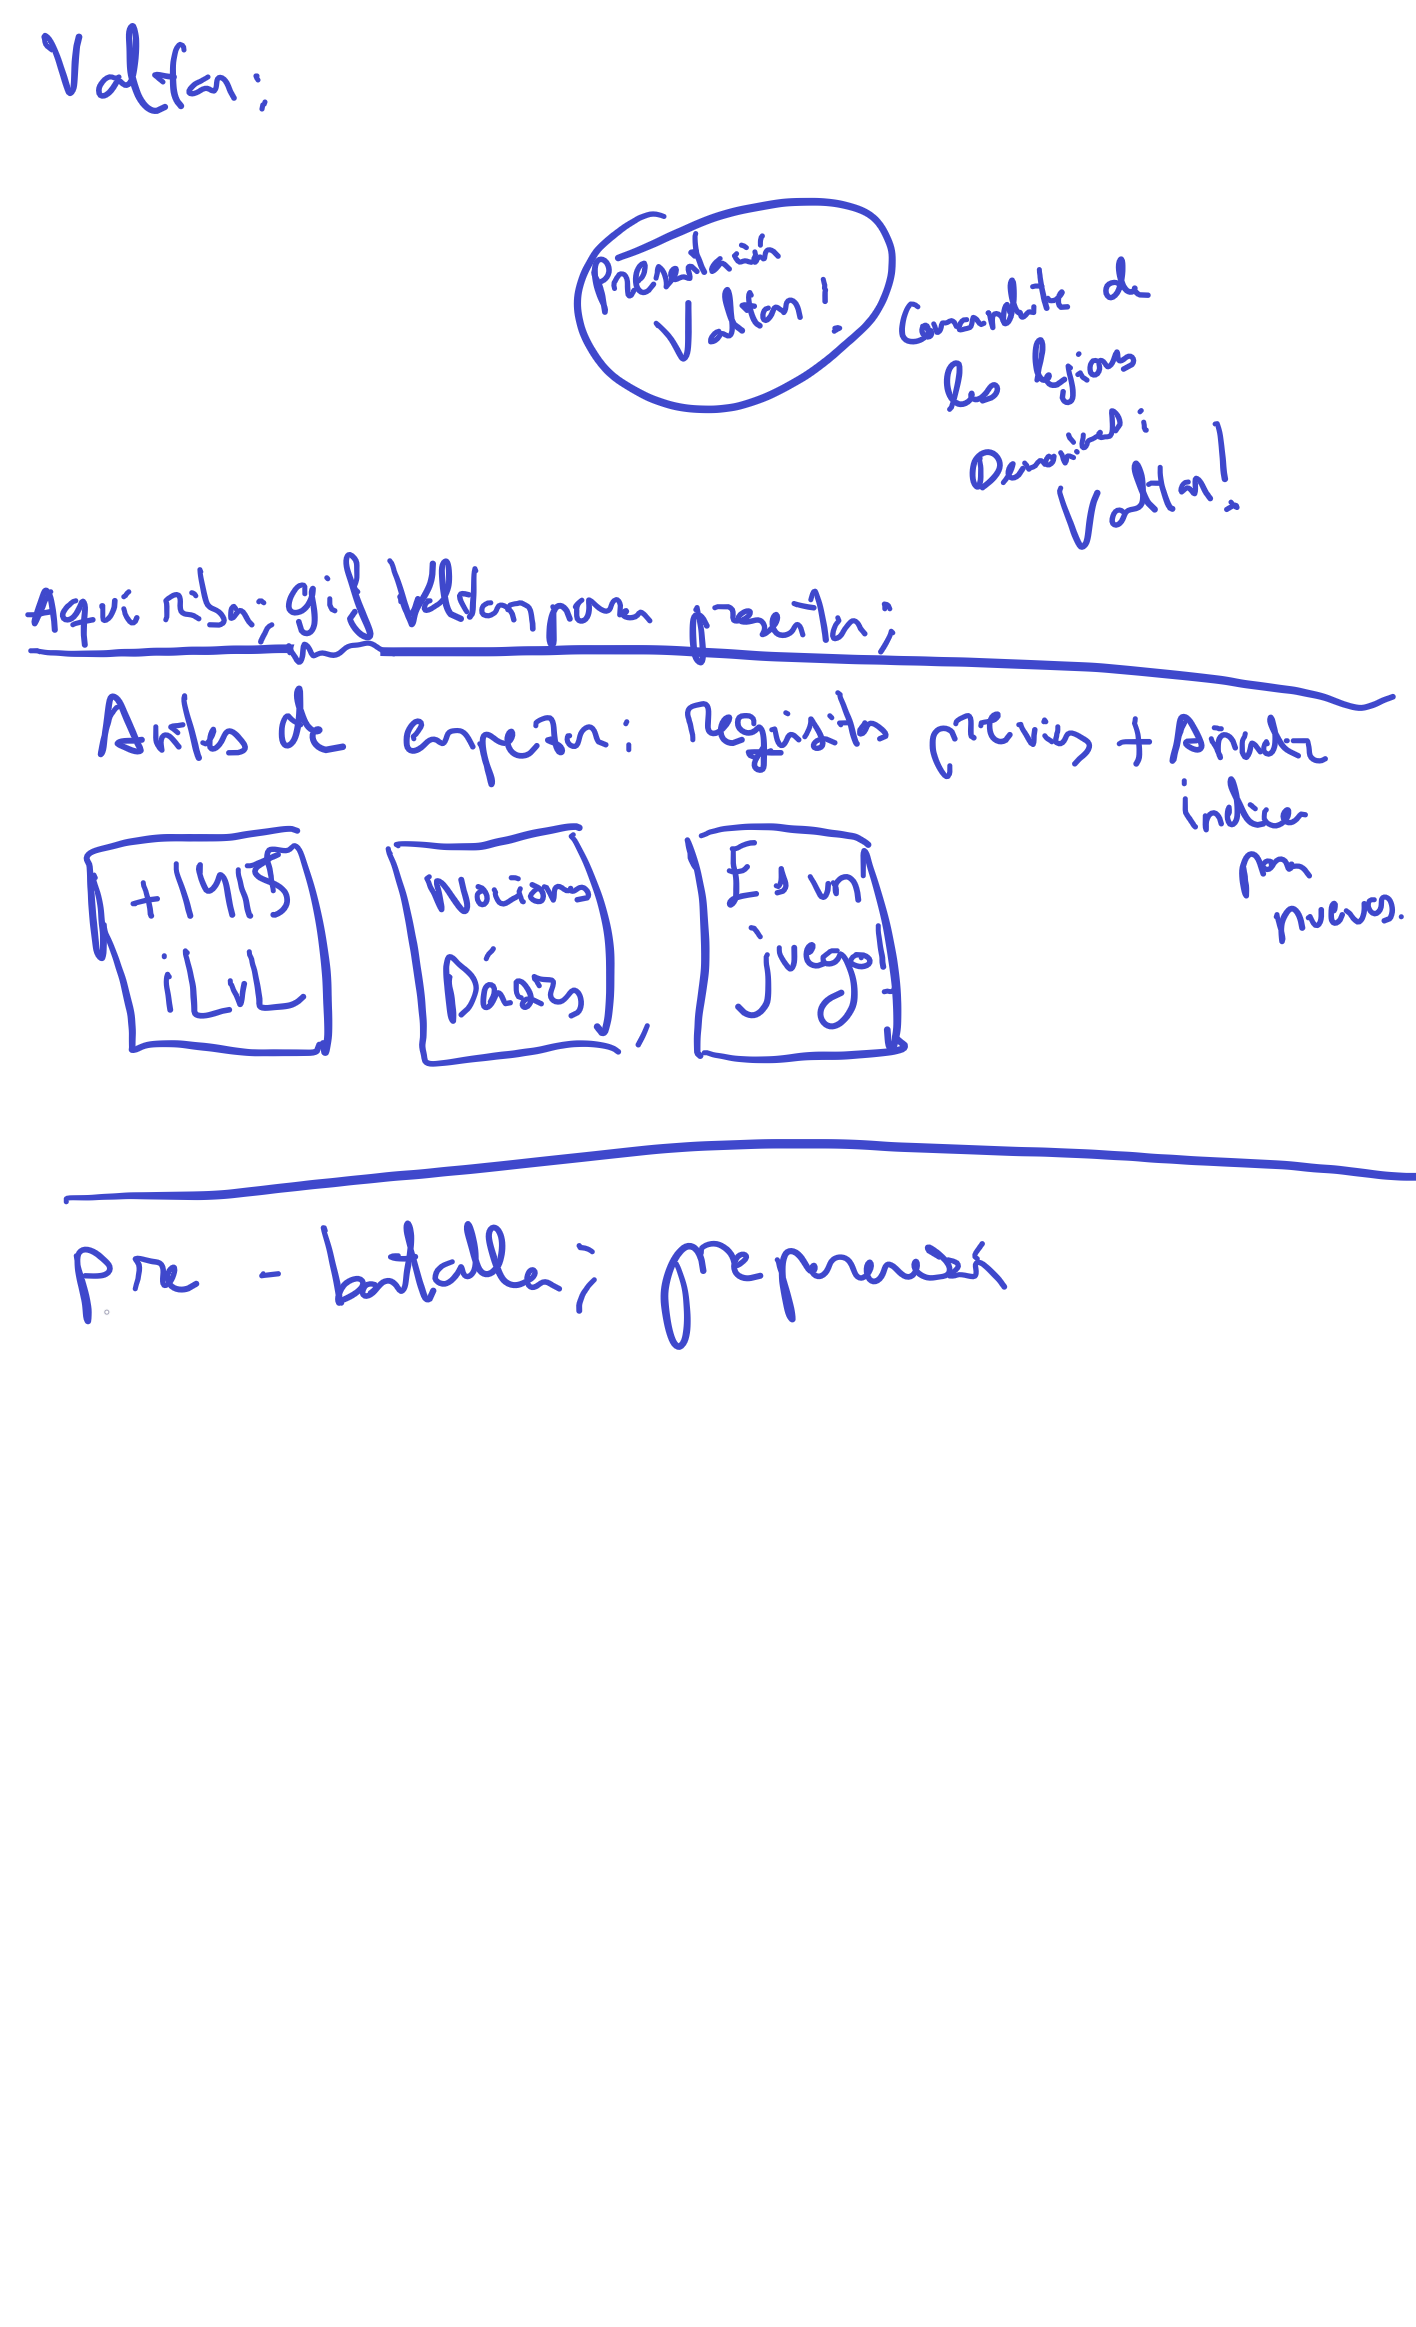 Valtan:
Presentación
Valtan!
Comandante de
las legiones
Demonicas:
Valtan!
Aqui arriba; gif Valtan para presentar;
Antes de empezar: Requisitos previos + Añadir
indice
para
nuevos.
+1415
iLvL
Nociones
Básicas,
Es un
juego!
Pre - batalla; preparación